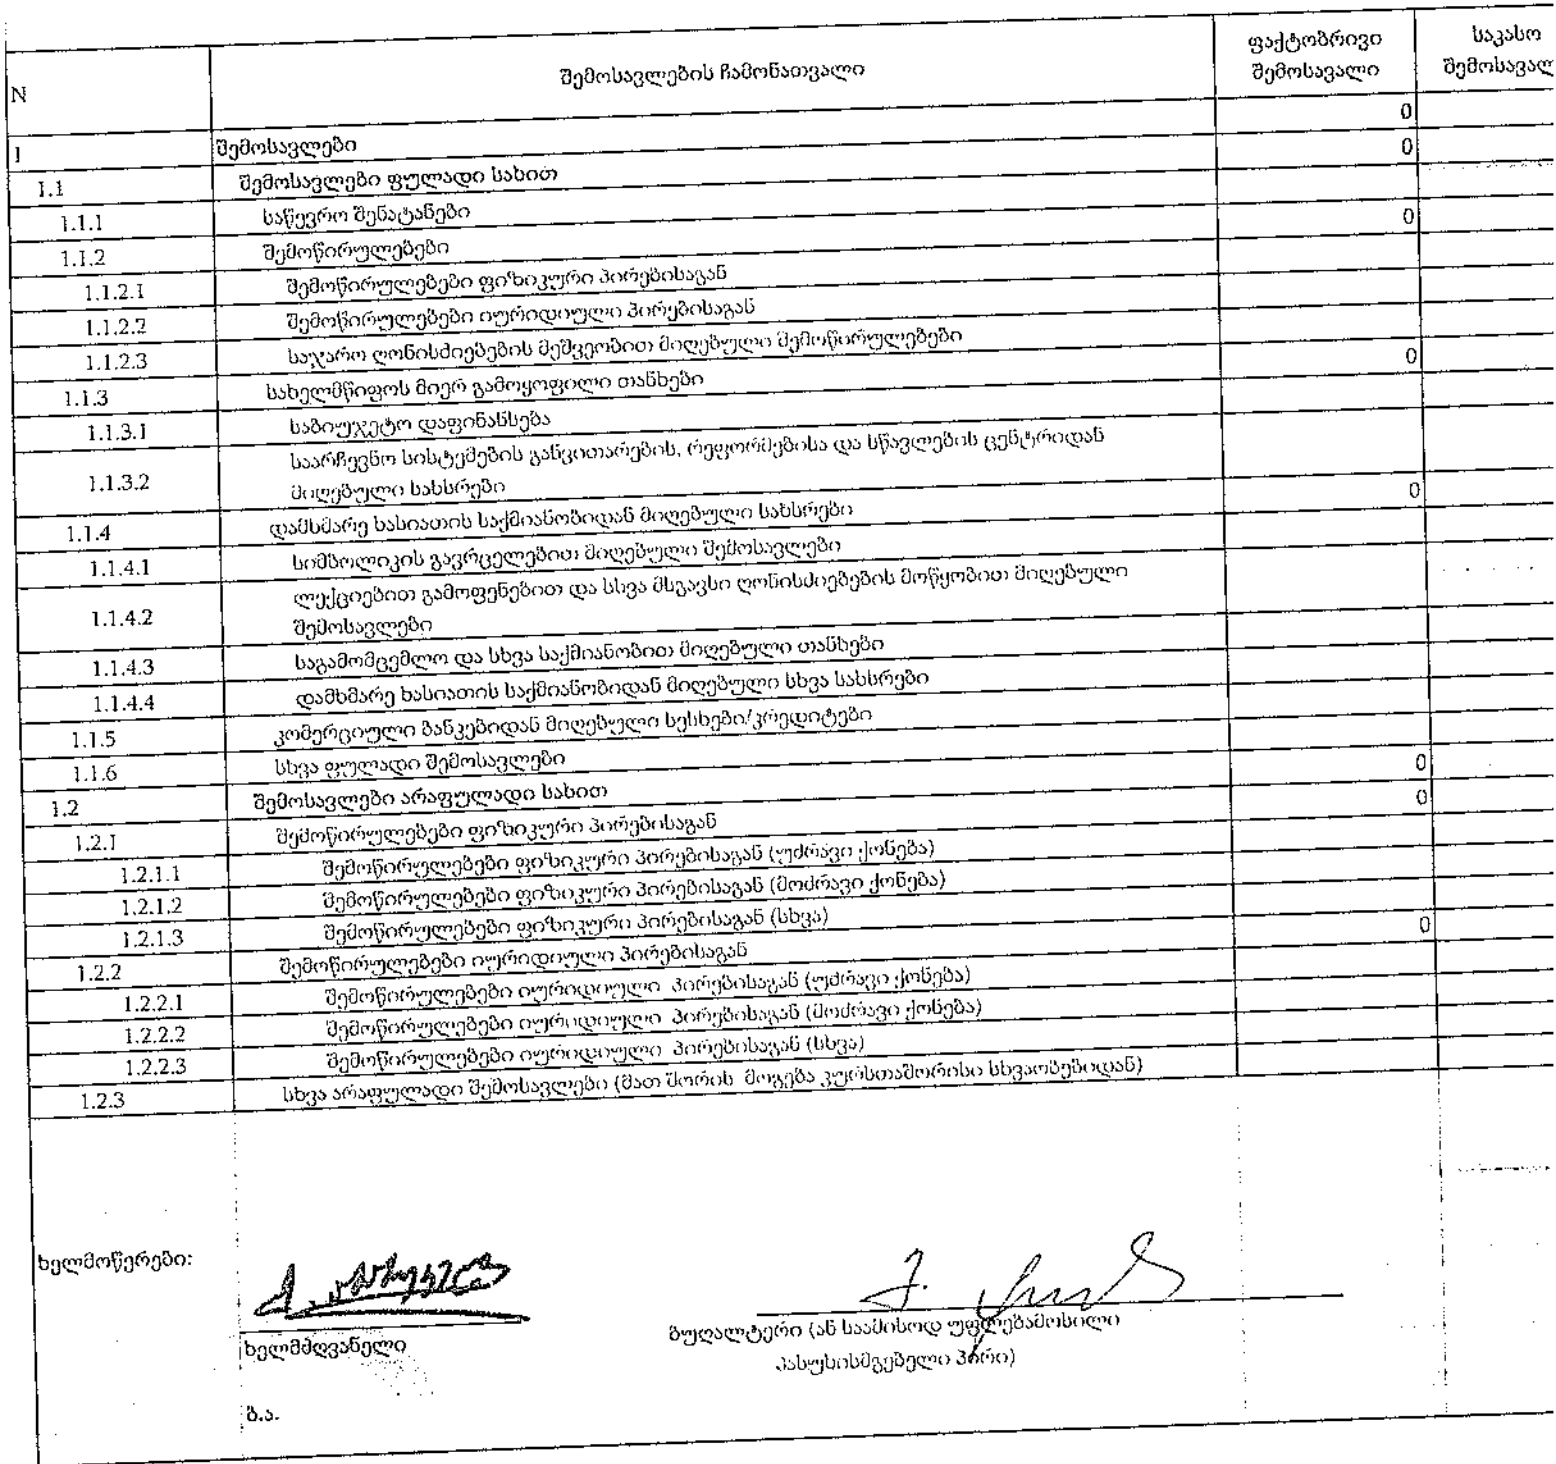 N შემოსავლების ჩამონათვალი ფაქტობრივი შემოსავალი საკასო შემოსავალ
1 შემოსავლები 0
1.1 შემოსავლები ფულადი სახით 0
1.1.1 საწევრო შენატანები
1.1.2 შემოწირულებები 0
1.1.2.1 შემოწირულებები ფიზიკური პირებისაგან
1.1.2.2 შემოწირულებები იურიდიული პირებისაგან
1.1.2.3 საჯარო ღონისძიებების მეშვეობით მიღებული შემოწირულებები
1.1.3 სახელმწიფოს მიერ გამოყოფილი თანხები 0
1.1.3.1 საბიუჯეტო დაფინანსება
1.1.3.2 საარჩევნო სისტემების განვითარების, რეფორმებისა და სწავლების ცენტრიდან
მიღებული სახსრები
1.1.4 დამხმარე ხასიათის საქმიანობიდან მიღებული სახსრები 0
1.1.4.1 სიმბოლიკის გავრცელებით მიღებული შემოსავლები
1.1.4.2 ლექციებით გამოფენებით და სხვა მსგავსი ღონისძიებების მოწყობით მიღებული
შემოსავლები
1.1.4.3 საგამომცემლო და სხვა საქმიანობით მიღებული თანხები
1.1.4.4 დამხმარე ხასიათის საქმიანობიდან მიღებული სხვა სახსრები
1.1.5 კომერციული ბანკებიდან მიღებული სესხები/კრედიტები
1.1.6 სხვა ფულადი შემოსავლები
1.2 შემოსავლები არაფულადი სახით 0
1.2.1 შემოწირულებები ფიზიკური პირებისაგან 0
1.2.1.1 შემოწირულებები ფიზიკური პირებისაგან (უძრავი ქონება)
1.2.1.2 შემოწირულებები ფიზიკური პირებისაგან (მოძრავი ქონება)
1.2.1.3 შემოწირულებები ფიზიკური პირებისაგან (სხვა)
1.2.2 შემოწირულებები იურიდიული პირებისაგან 0
1.2.2.1 შემოწირულებები იურიდიული პირებისაგან (უძრავი ქონება)
1.2.2.2 შემოწირულებები იურიდიული პირებისაგან (მოძრავი ქონება)
1.2.2.3 შემოწირულებები იურიდიული პირებისაგან (სხვა)
1.2.3 სხვა არაფულადი შემოსავლები (მათ შორის მოგება კურსთაშორისი სხვაობებიდან)
ხელმოწერები:
ხელმძღვანელი
ბუღალტერი (ან საამისოდ უფლებამოსილი
პასუხისმგებელი პირი)
ბ.ა.